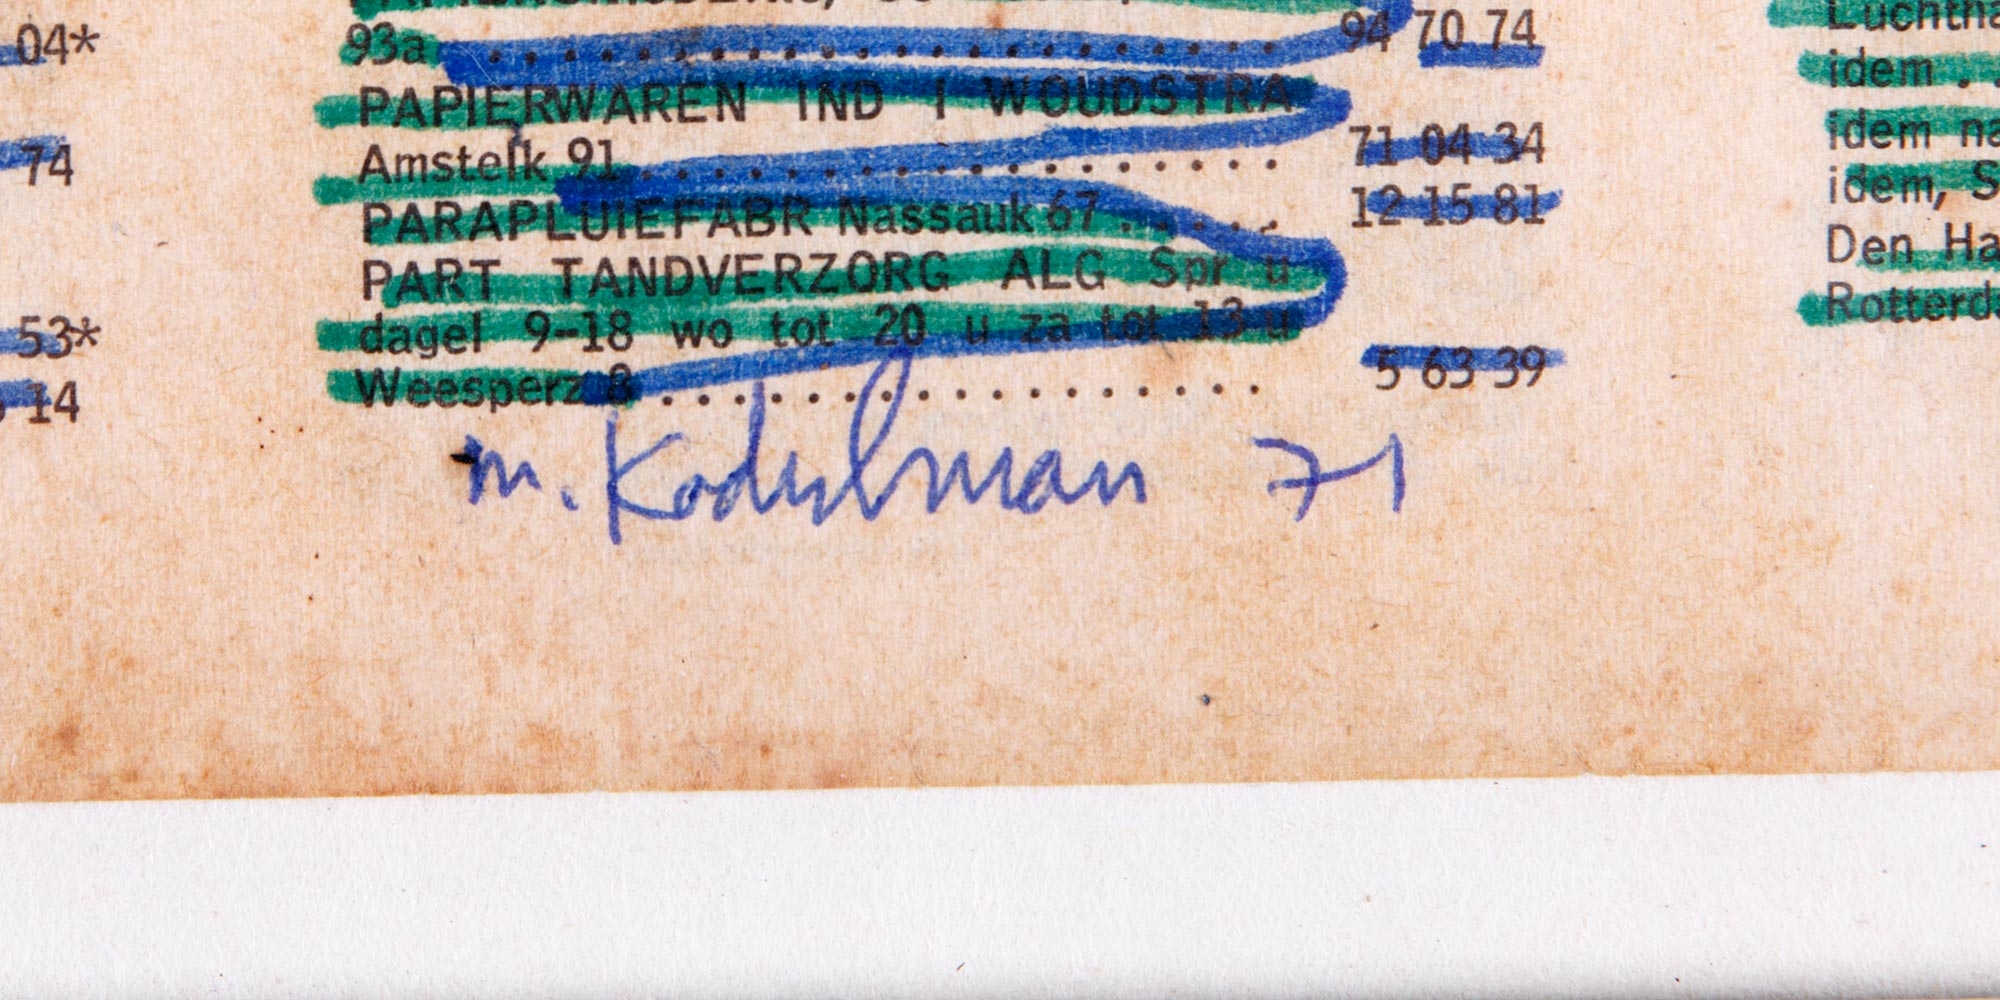 04*
74
53*
14
93a . . . . . . . . . . . . . . . . . . . . . 94 70 74
PAPIERWAREN IND I WOUDSTRA
Amstelk 91 . . . . . . . . . . . . . . . . . . 71 04 34
PARAPLUIEFABR Nassauk 67 . . . . . . 12 15 81
PART TANDVERZORG ALG Spr u
dagel 9-18 wo tot 20 u za tot 13 u
Weesperz 8 . . . . . . . . . . . . . . . . . 5 63 39
m. 71
idem . .
idem
idem, S
Den Ha
Rotterda